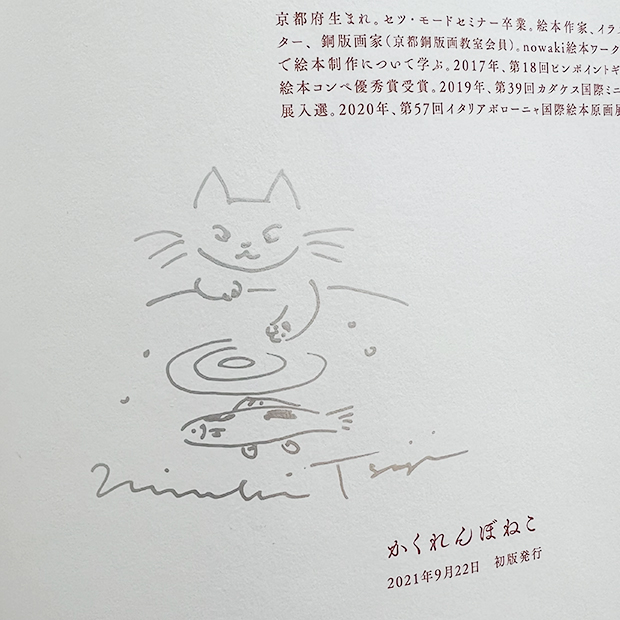 京都府生まれ。セツ・モードセミナー卒業。絵本作家、イラ
ター、銅版画家(京都銅版画教室会員)。nowaki絵本ワーク
で絵本制作について学ぶ。2017年、第18回ピンポイントギ
絵本コンペ優秀賞受賞。2019年、第39回カダケス国際ミニ
展入選。2020年、第57回イタリアボローニャ国際絵本原画展
かくれんぼねこ
2021年9月22日 初版発行